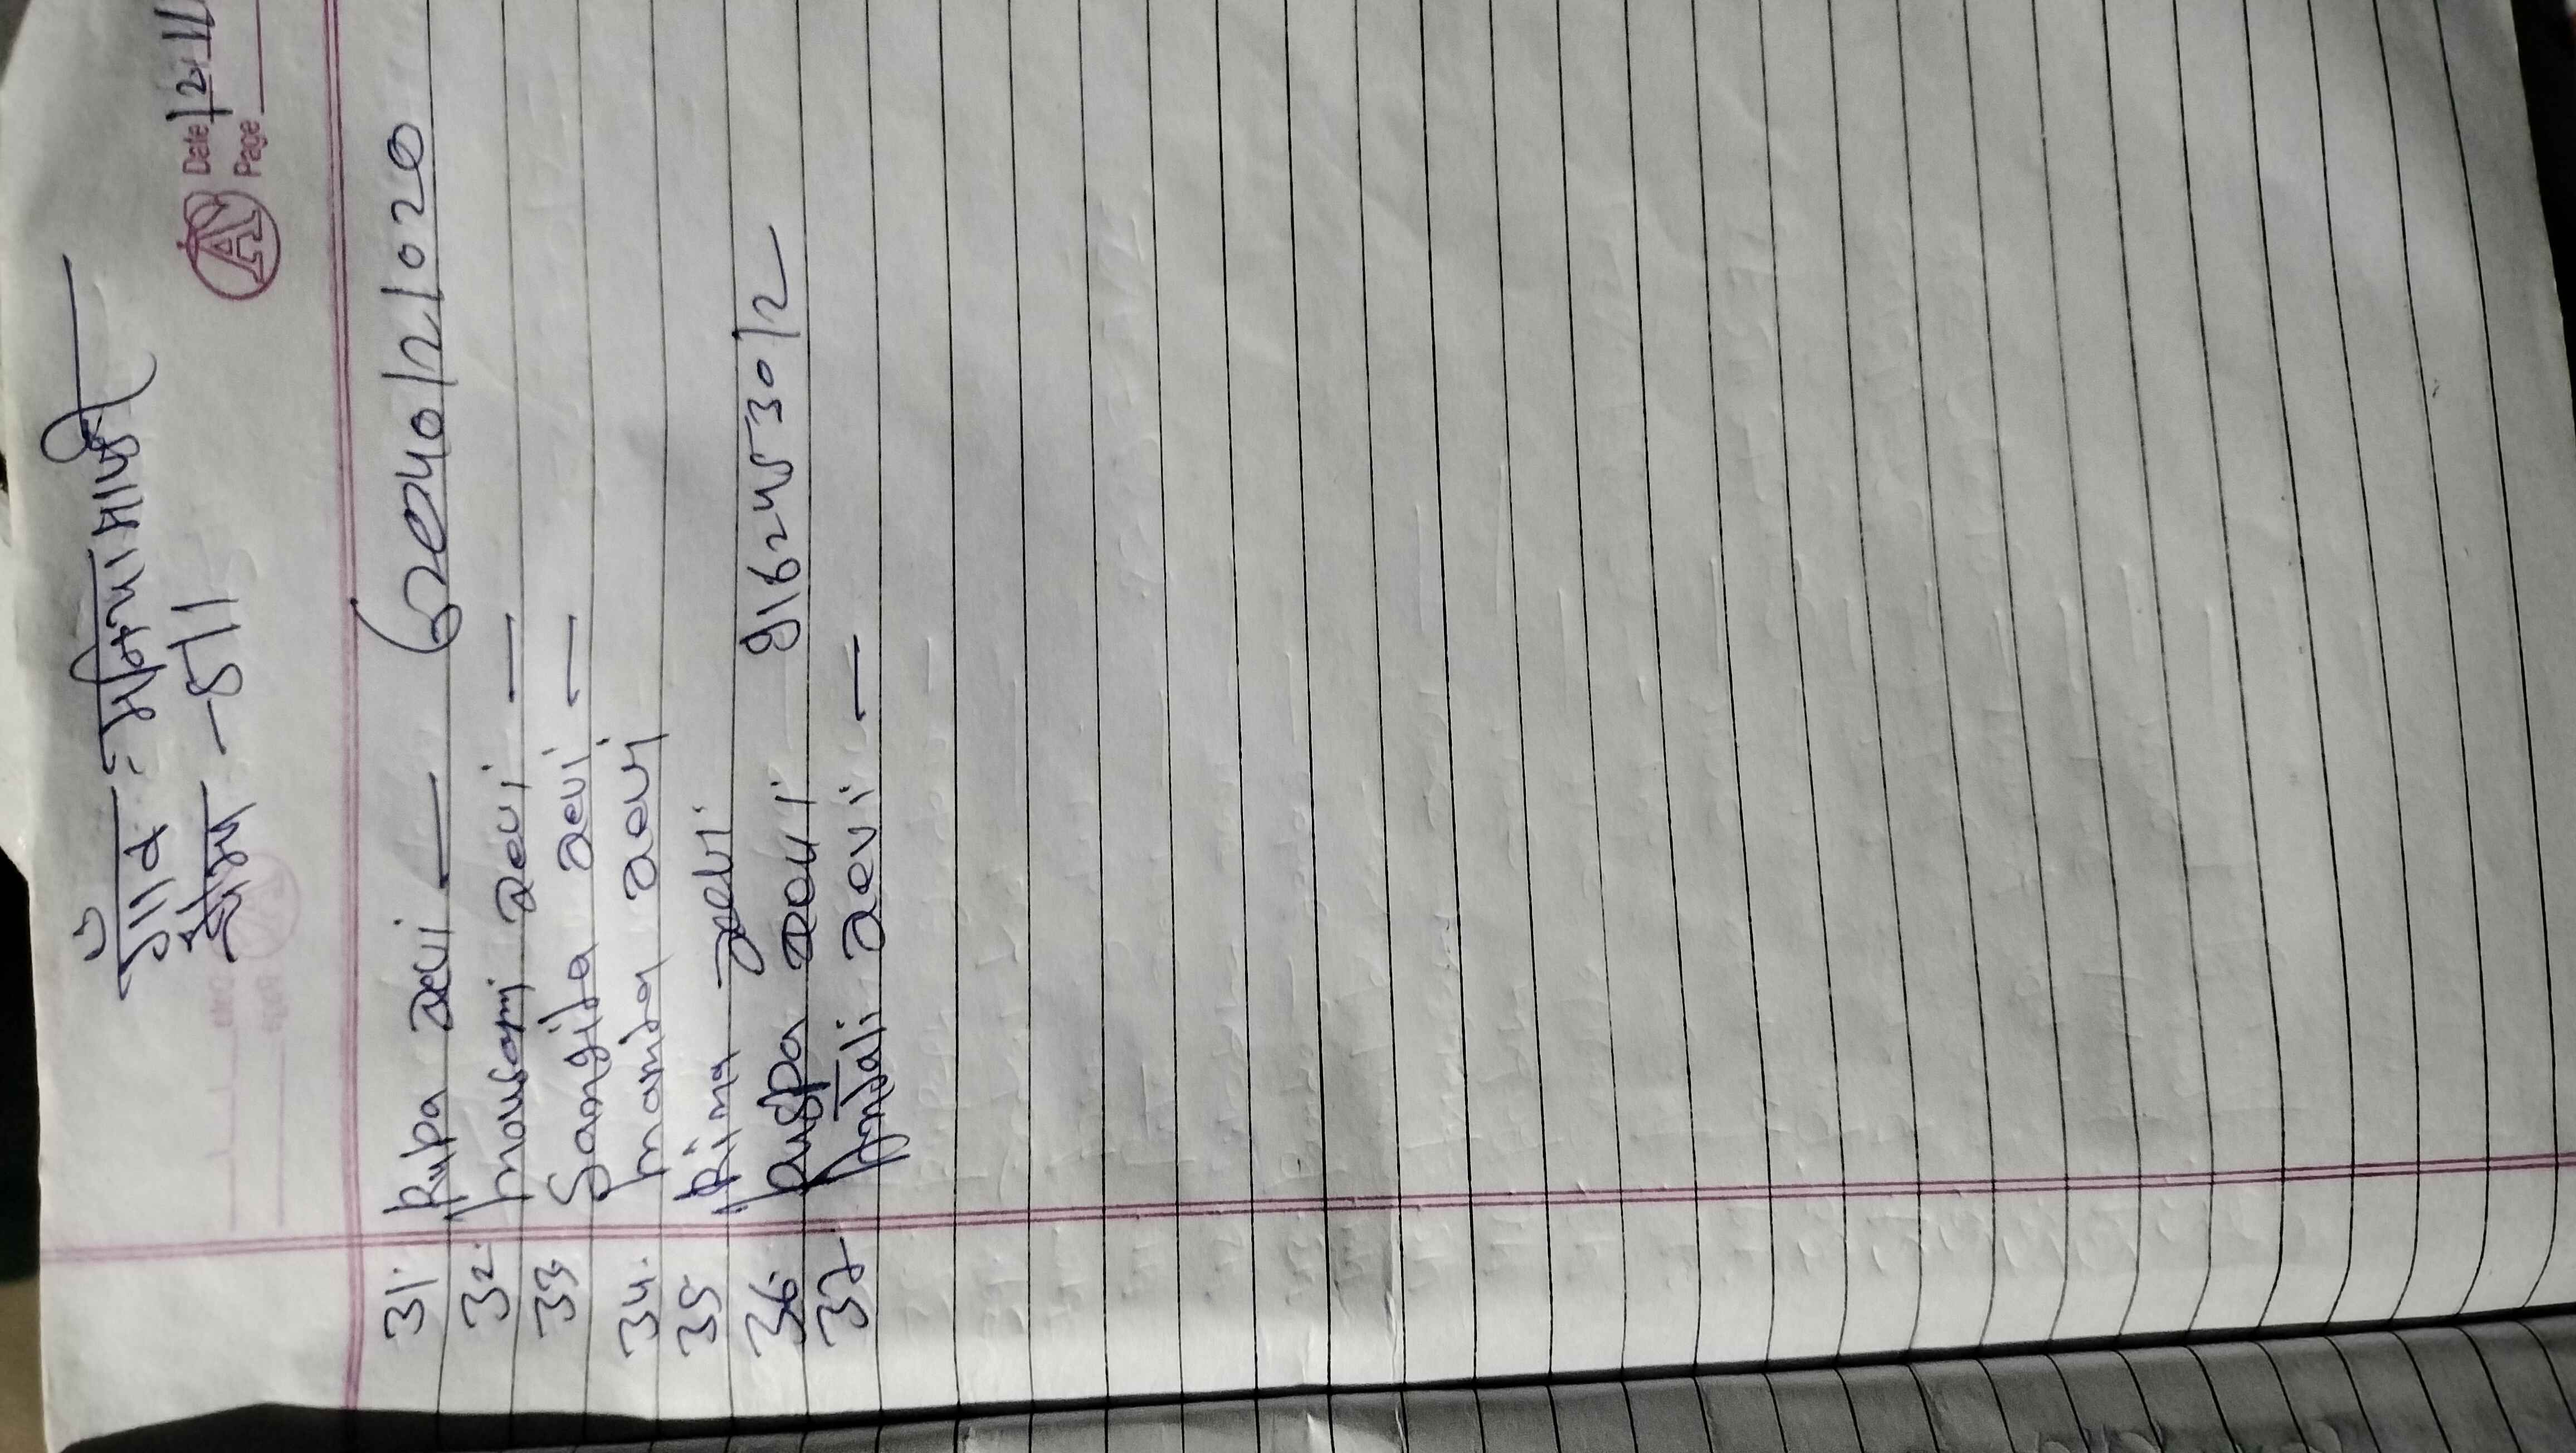 गाँव :-
टीम - 511
Date 12/11
Page
31. Rupa devi — 620240121020
32. mousami devi —
33 Sangita devi —
34. mamta devi
35 Rima devi
36. puspa devi 9162453012
37 devi —